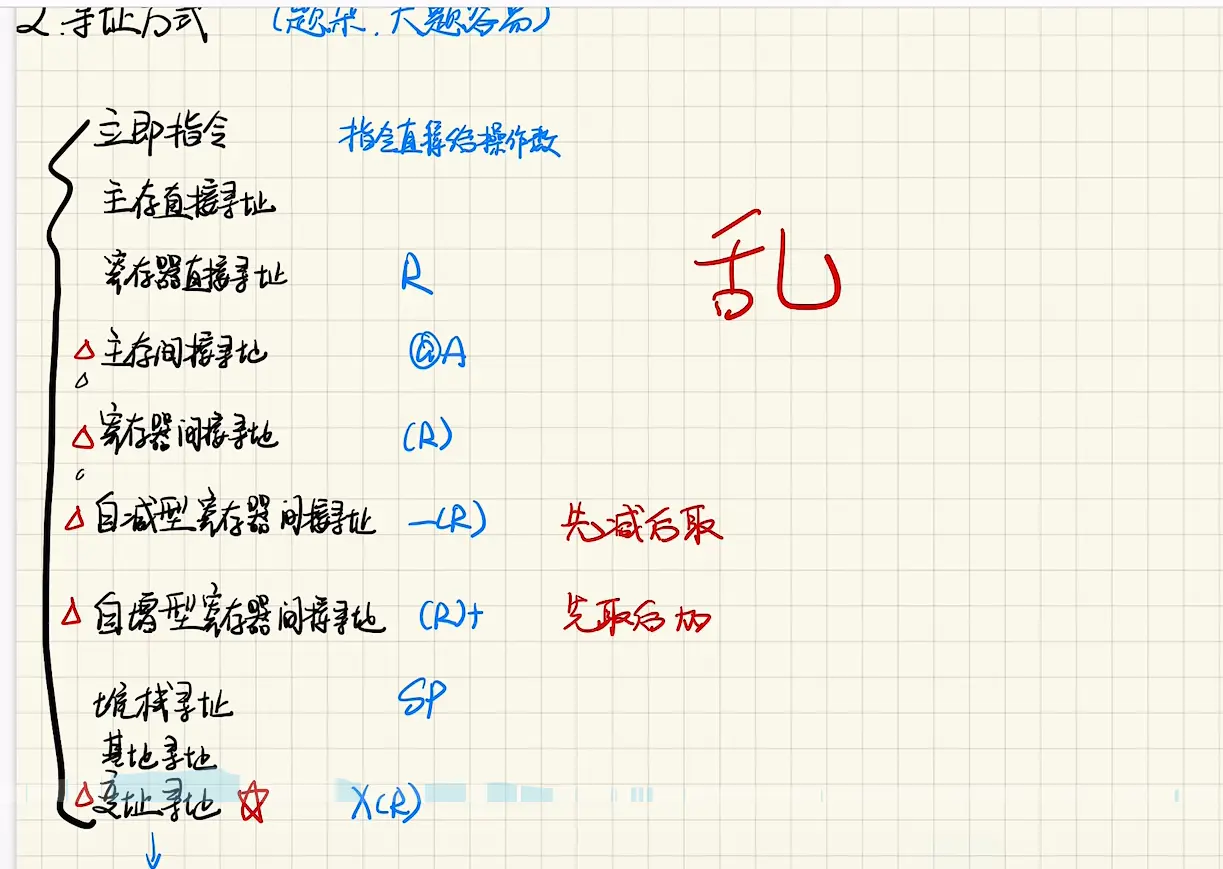 2.寻址方式 (题杂.大题容易)
立即指令 指令直接给操作数
主存直接寻址
乱
寄存器直接寻址 R
△主存间接寻址 @A
△寄存器间接寻址 (R)
△自减型寄存器间接寻址 -(R) 先减后取
△自增型寄存器间接寻址 (R)+ 先取后加
堆栈寻址 SP
基址寻址
△变址寻址 ☆ X(R)